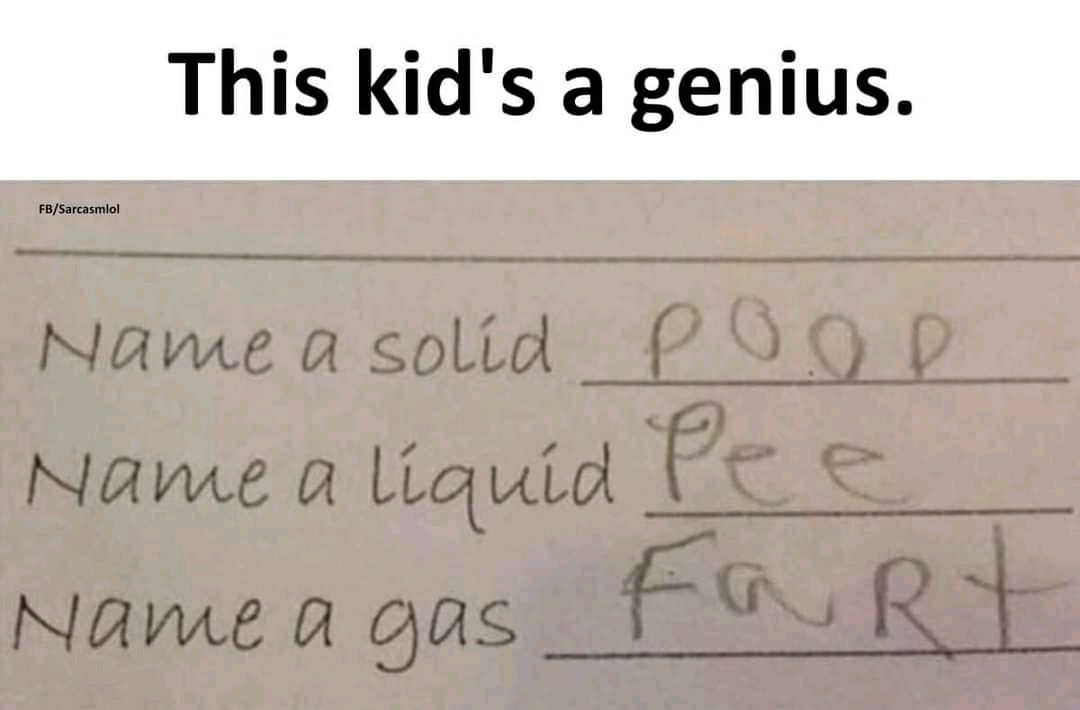 This kid's a genius.
FB/Sarcasmlol
Name a solid POOP
Name a liquid Pee
Name a gas FaRt